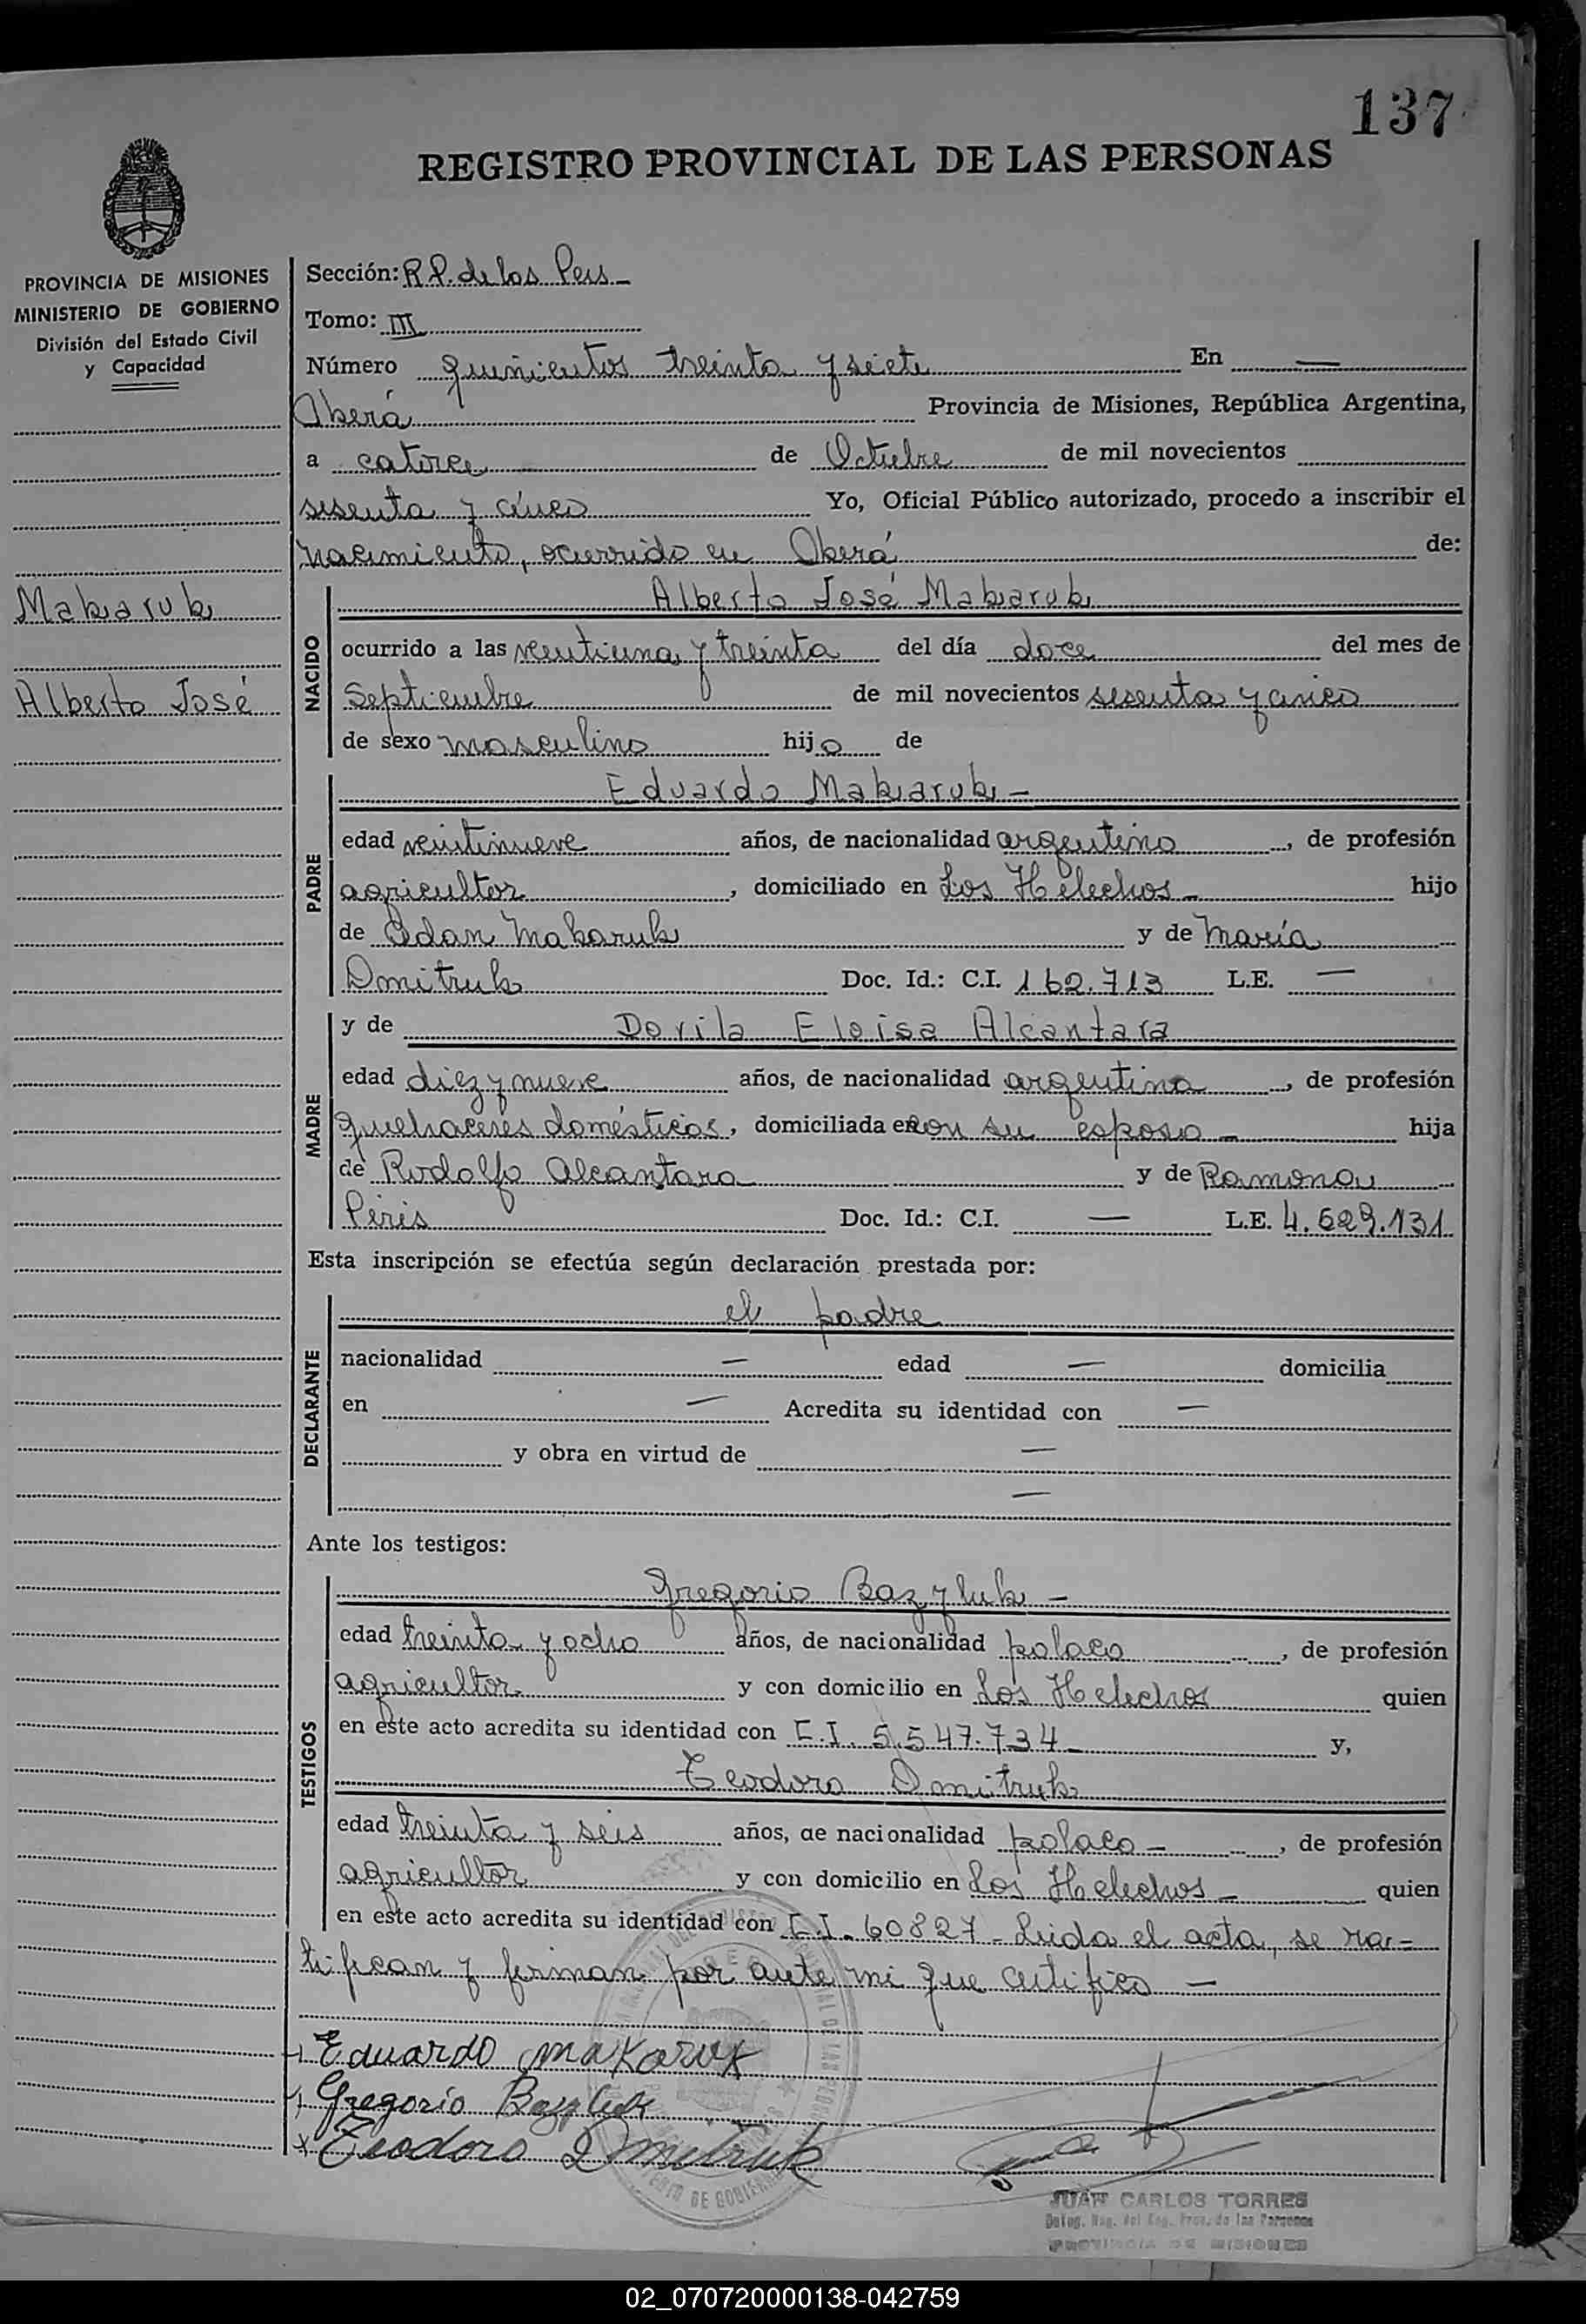 137
REGISTRO PROVINCIAL DE LAS PERSONAS
PROVINCIA DE MISIONES
MINISTERIO DE GOBIERNO
División del Estado Civil
y Capacidad
Makaruk
Alberto José
Sección: R.P. de las Pers -
Tomo: III
Número quinientos treinta y siete En —
Oberá Provincia de Misiones, República Argentina,
a catorce de Octubre de mil novecientos
sesenta y cinco Yo, Oficial Público autorizado, procedo a inscribir el
nacimiento, ocurrido en Oberá de:
NACIDO
Alberto José Makaruk
ocurrido a las veintiuna y treinta del día doce del mes de
Septiembre de mil novecientos sesenta y cinco
de sexo masculino hijo de
PADRE
Eduardo Makaruk -
edad veintinueve años, de nacionalidad argentino, de profesión
agricultor, domiciliado en Los Helechos - hijo
de Adan Makaruk y de María
Dmitruk Doc. Id.: C.I. 162.713 L.E. —
MADRE
y de Dorila Eloisa Alcantara
edad diez y nueve años, de nacionalidad argentina, de profesión
quehaceres domésticos, domiciliada en con su esposo - hija
de Rodolfo Alcantara y de Ramona
Peris Doc. Id.: C.I. — L.E. 4.529.131
Esta inscripción se efectúa según declaración prestada por:
DECLARANTE
el padre
nacionalidad — edad — domicilia
en — Acredita su identidad con —
y obra en virtud de —
—
Ante los testigos:
TESTIGOS
Gregorio Bazyluk -
edad treinta y ocho años, de nacionalidad polaco, de profesión
agricultor y con domicilio en Los Helechos quien
en este acto acredita su identidad con C.I. 5.547.734 - y,
Teodoro Dmitruk
edad treinta y seis años, de nacionalidad polaco -, de profesión
agricultor y con domicilio en Los Helechos - quien
en este acto acredita su identidad con C.I. 60827 - Leida el acta, se ra-
tifican y firman por ante mi que certifico -
Eduardo Makaruk
Gregorio Bazyluk
Teodoro Dmitruk
JUAN CARLOS TORRES
Deleg. Reg. del Reg. Prov. de las Personas
PROVINCIA DE MISIONES
02_070720000138-042759